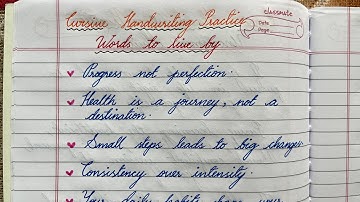 Cursive Handwriting Practice
classmate
Date
Page
Words to live by
Progress not perfection.
Health is a journey, not a
destination.
Small steps leads to big changes.
Consistency over intensity.
Your daily habits shape your